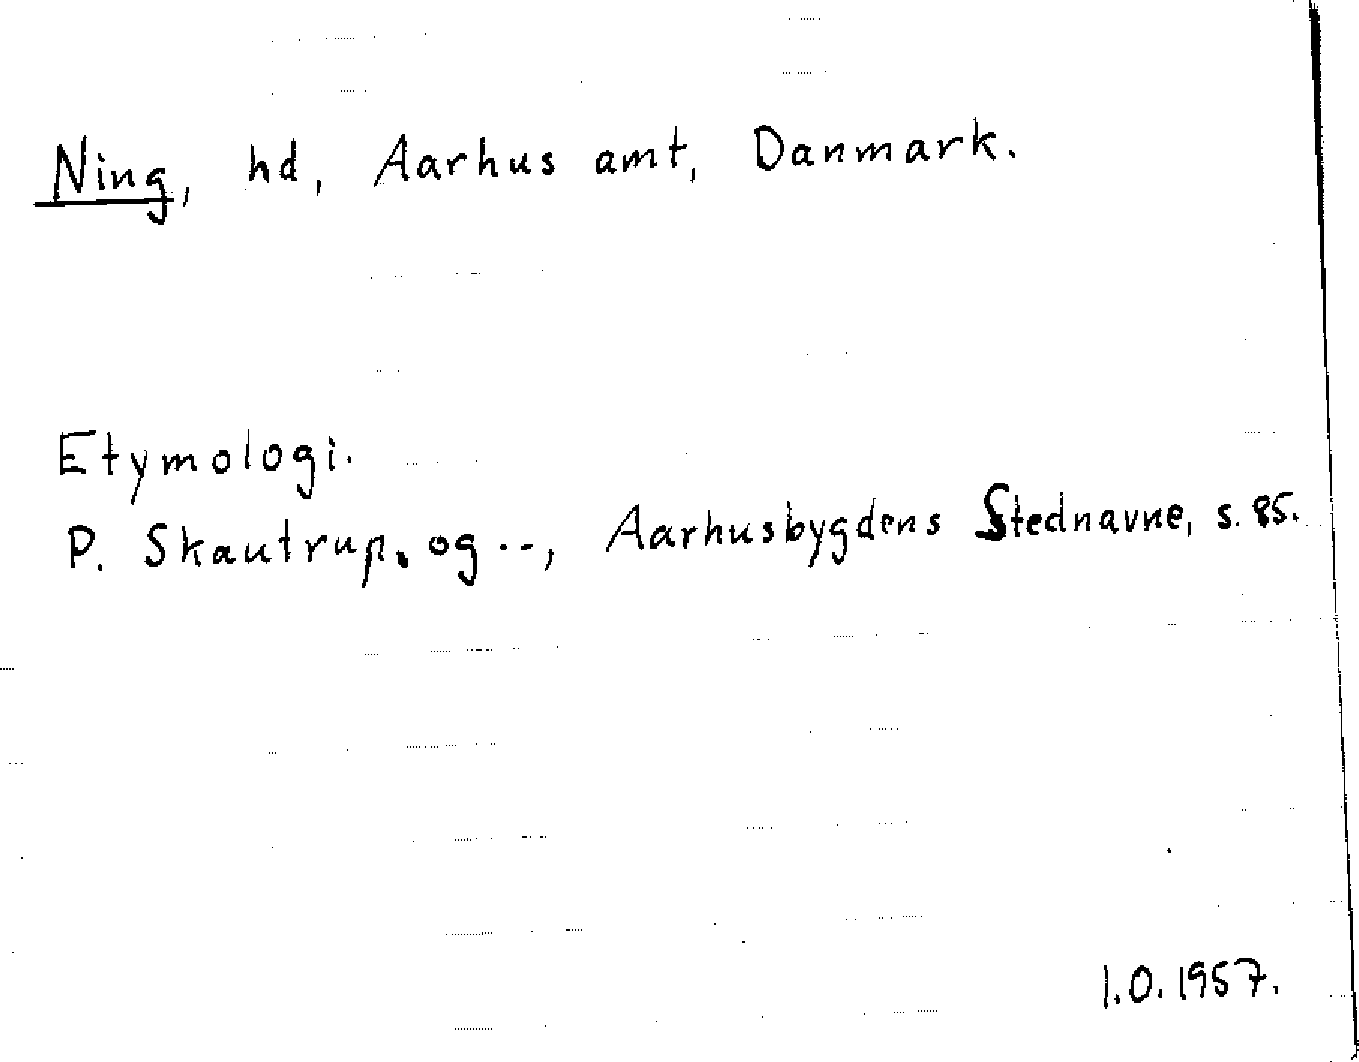 Ning, hd, Aarhus amt, Danmark.
Etymologi.
P. Skautrup. og --, Aarhusbygdens Stednavne, s. 85.
I.O. 1957.